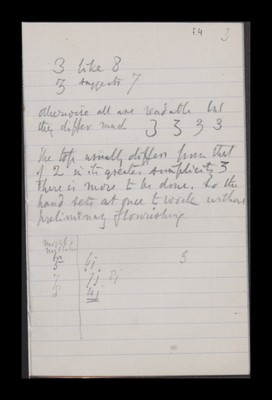 F.4 3
3 like 8
3 suggests 7
otherwise all are readable but
they differ much 3 3 3 3
The top usually differs from that
of 2 in its greater simplicity 3
There is more to be done. So the
hand sets at once to work without
preliminary flourishing
3